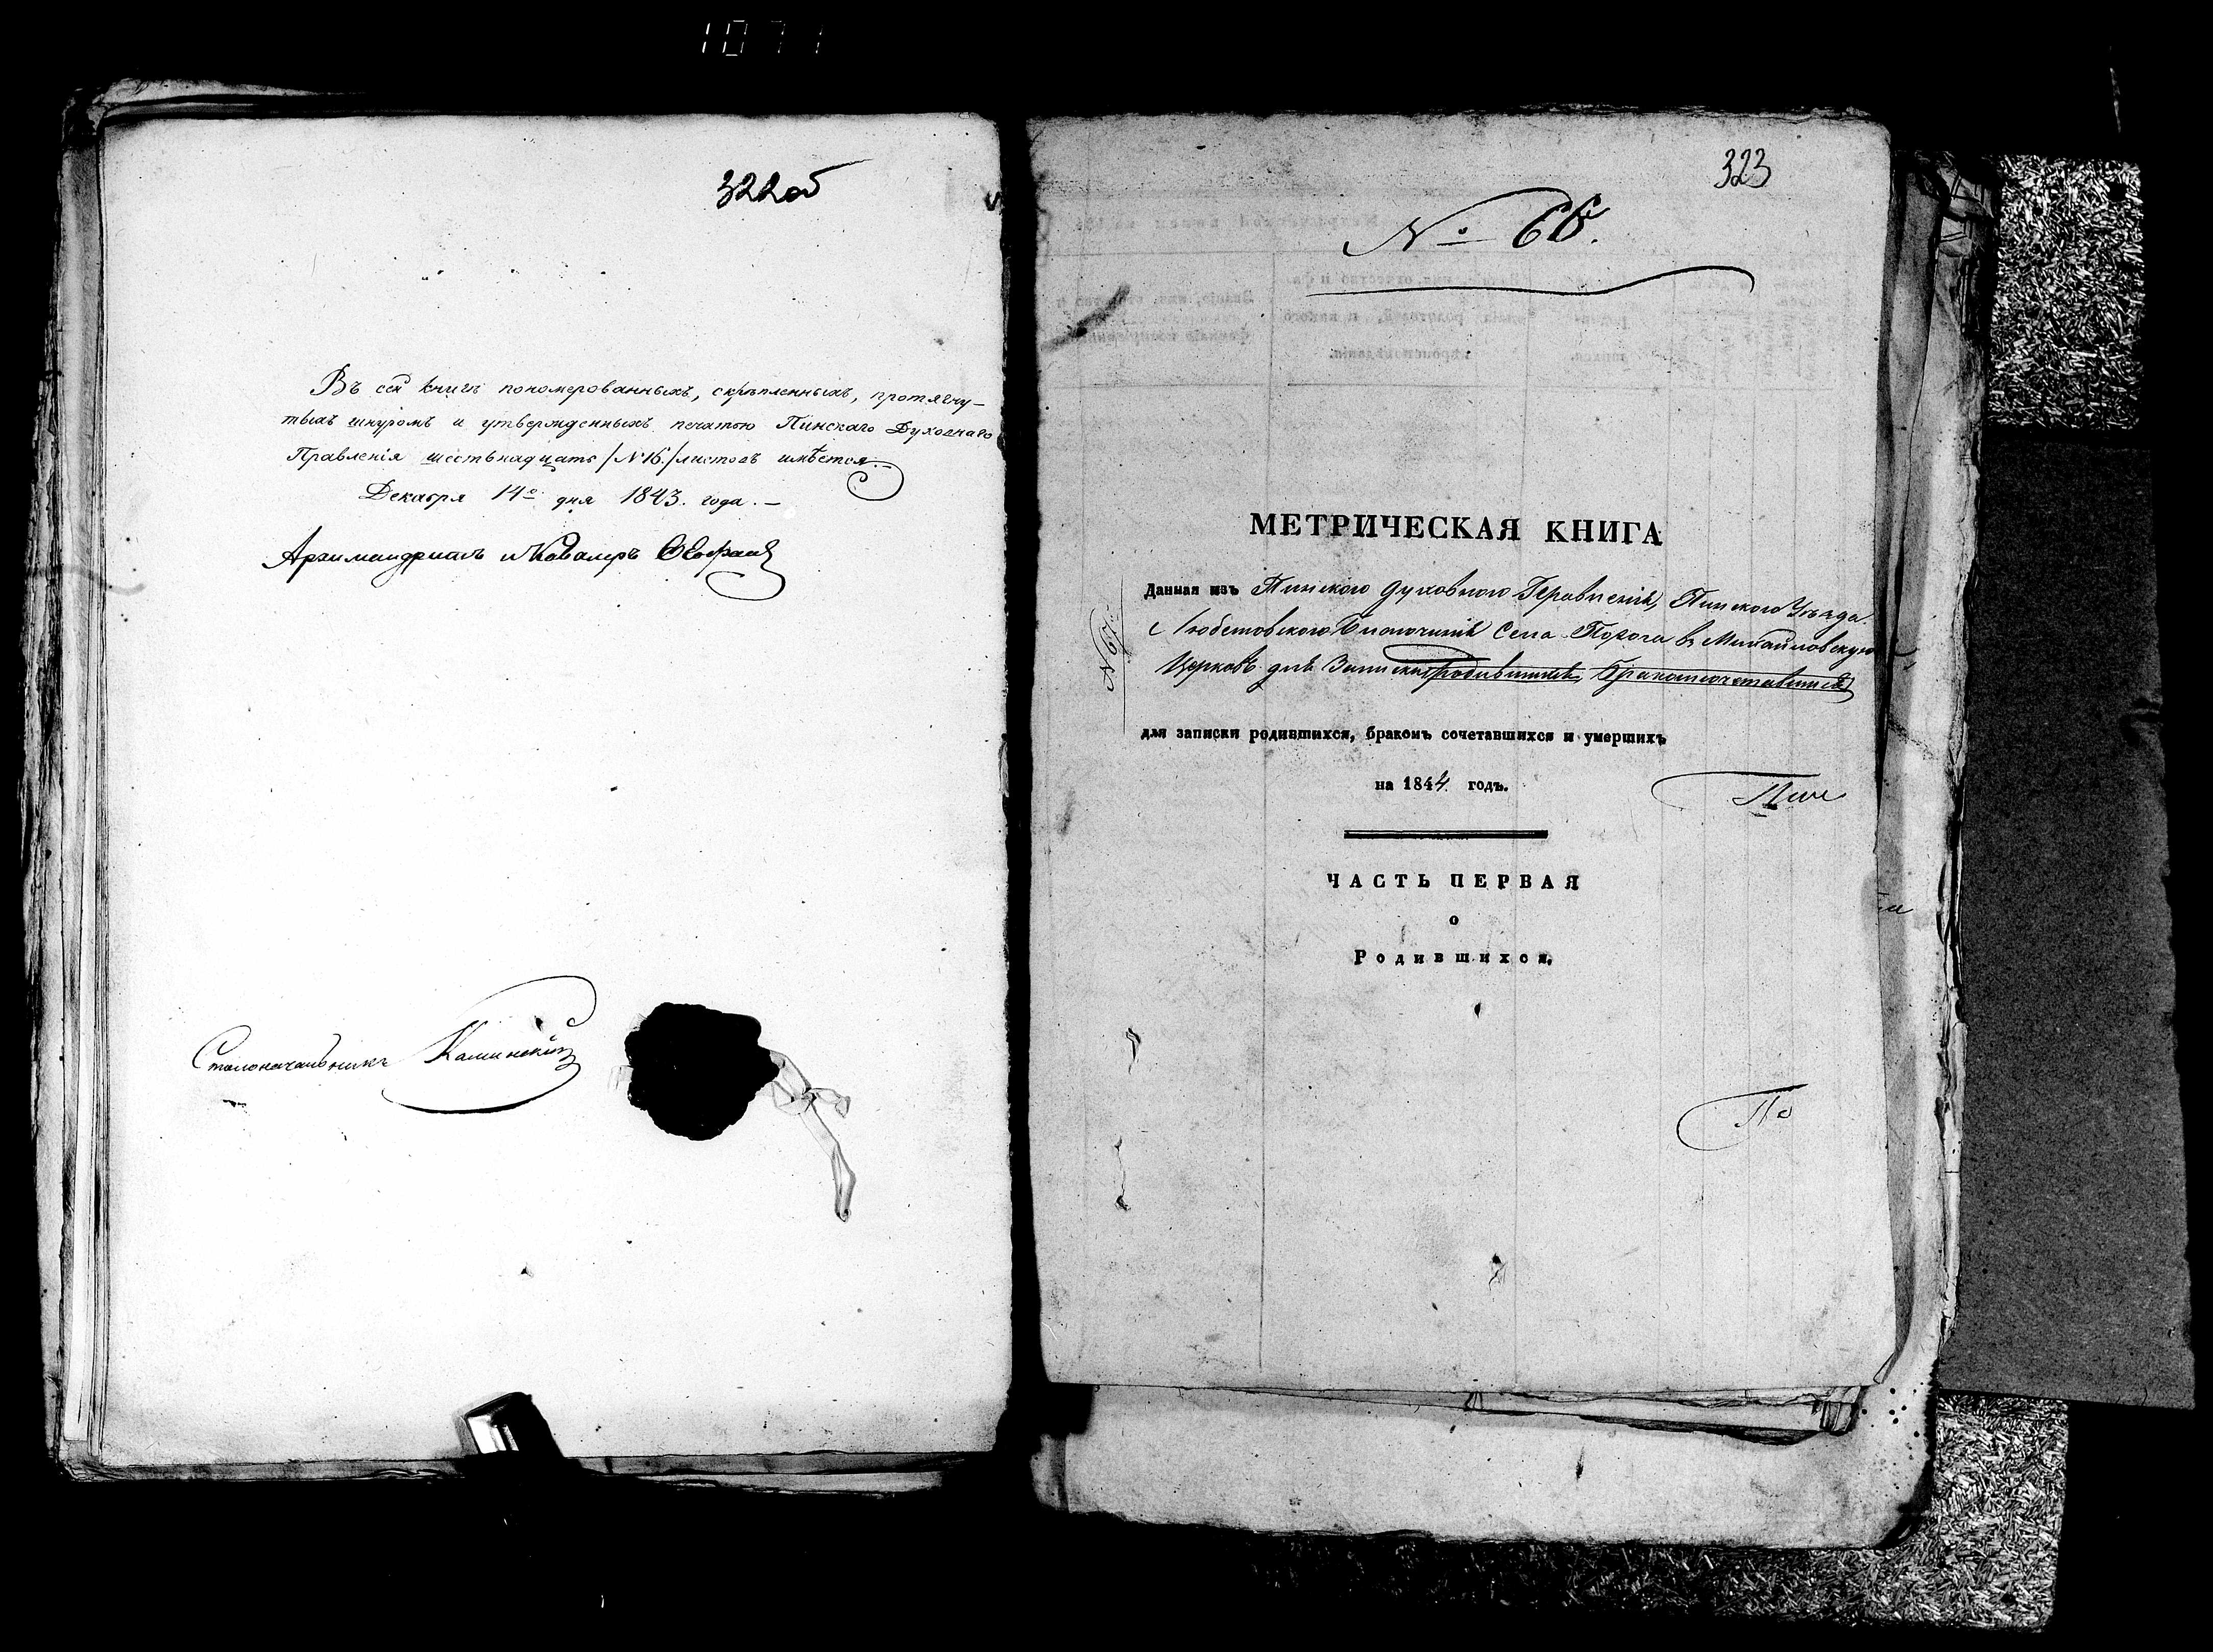 1071
322об
Въ сей книгѣ пономерованныхъ, скрѣпленныхъ, протягну-
тыхъ шнуромъ и утвержденныхъ печатью Пинскаго Духовнаго
Правленія шестьнадцать /№16./ листовъ имѣется.-
Декабря 14го дня 1843. года. -
Архимандритъ и Кавалеръ
Столоначальникъ Каминскій
323
№ 66.
МЕТРИЧЕСКАЯ КНИГА
Данная изъ Пинского Духовного Правленія, Пинского Уѣзда
Любешовского Благочинія Села Порога въ Михайловскую
Церковь для Записки родившихся, Бракомсочетавшихся
№ 67.
для записки родившихся, бракомъ сочетавшихся и умершихъ
на 1844 годъ.
Пин
ЧАСТЬ ПЕРВАЯ
о
Родившихся,
По